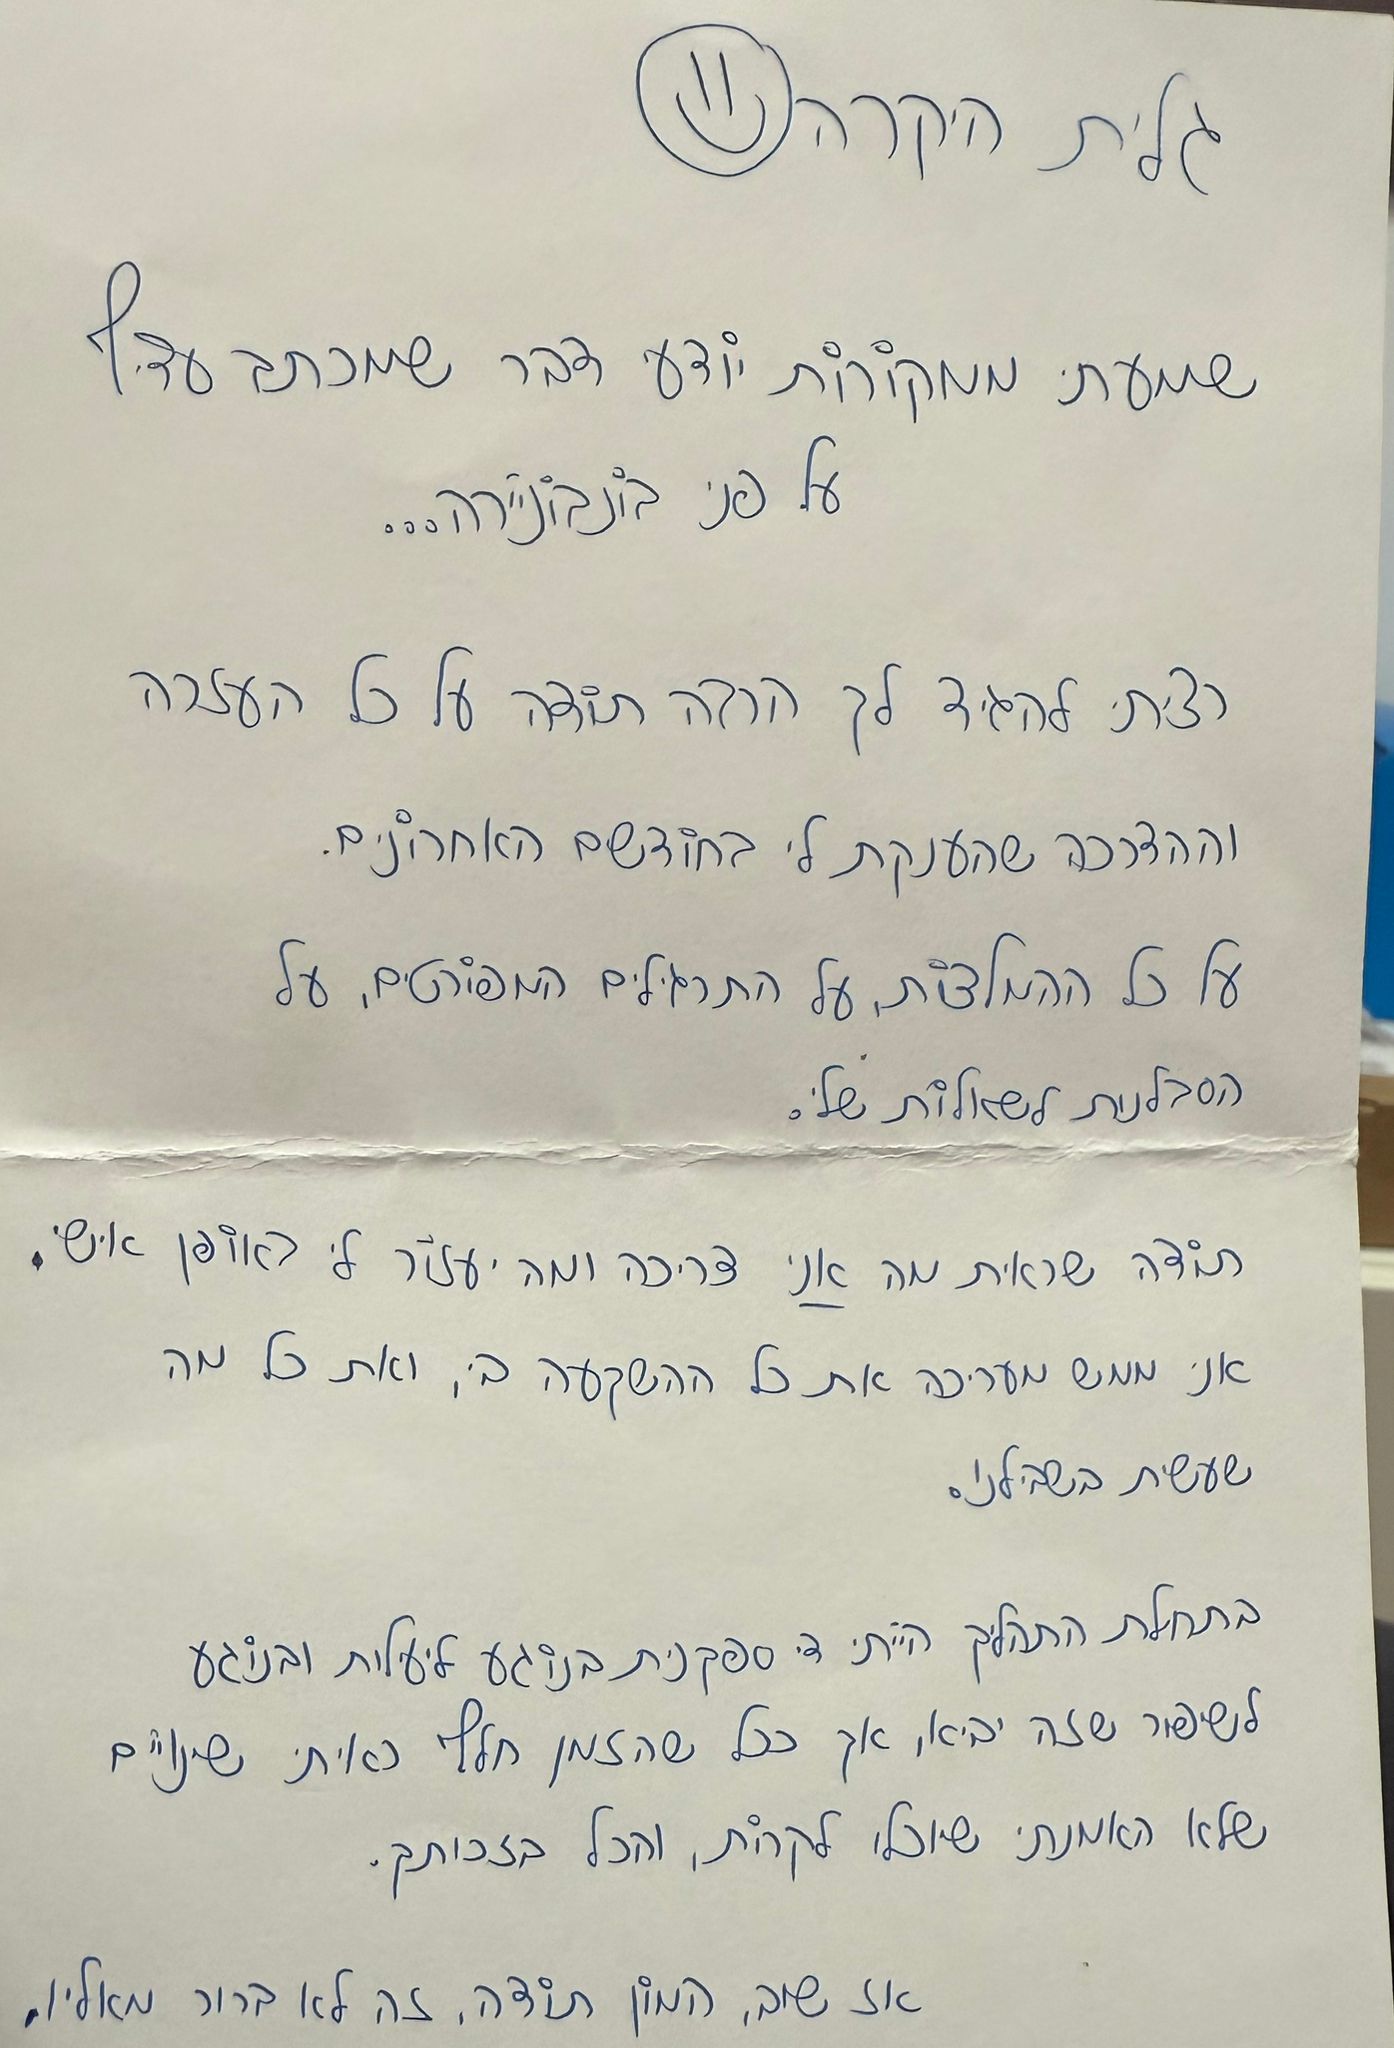 גלית היקרה
שמעתי ממקורות יודעי דבר שמכתב עדיף
על פני בונבוניירה...
רציתי להגיד לך הרבה תודה על כל העזרה
וההדרכה שהענקת לי בחודשים האחרונים.
על כל ההמלצות, על התרגילים המפורטים, על
הסבלנות לשאלות שלי.
תודה שראית מה אני צריכה ומה יעזור לי באופן אישי.
אני ממש מעריכה את כל ההשקעה בי, ואת כל מה
שעשית בשבילנו.
בתחילת התהליך הייתי די ספקנית בנוגע ליעילות ובנוגע
לשיפור שזה יביא, אך ככל שהזמן חלף ראיתי שינויים
שלא האמנתי שיוכלו לקרות, והכל בזכותך.
אז שוב, המון תודה, זה לא ברור מאליו.